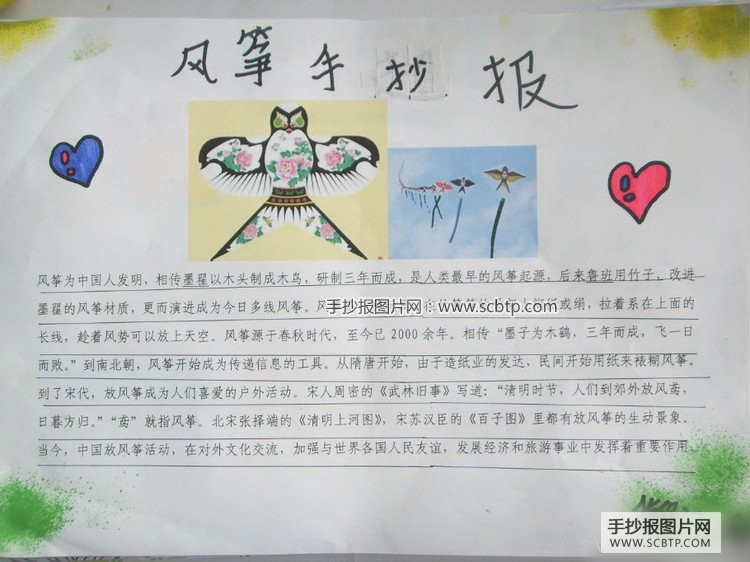 风筝手抄报
风筝为中国人发明，相传墨翟以木头制成木鸟，研制三年而成，是人类最早的风筝起源，后来鲁班用竹子，改进
墨翟的风筝材质，更而演进成为今日多线风筝。风
手抄报图片网：www.scbtp.com
或绢，拉着系在上面的
长线，趁着风势可以放上天空。风筝源于春秋时代，至今已 2000 余年。相传“墨子为木鹞，三年而成，飞一日
而败。”到南北朝，风筝开始成为传递信息的工具。从隋唐开始，由于造纸业的发达，民间开始用纸来裱糊风筝。
到了宋代，放风筝成为人们喜爱的户外活动。宋人周密的《武林旧事》写道：“清明时节，人们到郊外放风鸢，
日暮方归。”“鸢”就指风筝。北宋张择端的《清明上河图》，宋苏汉臣的《百子图》里都有放风筝的生动景象。
当今，中国放风筝活动，在对外文化交流，加强与世界各国人民友谊，发展经济和旅游事业中发挥着重要作用。
手抄报图片网
WWW.SCBTP.COM